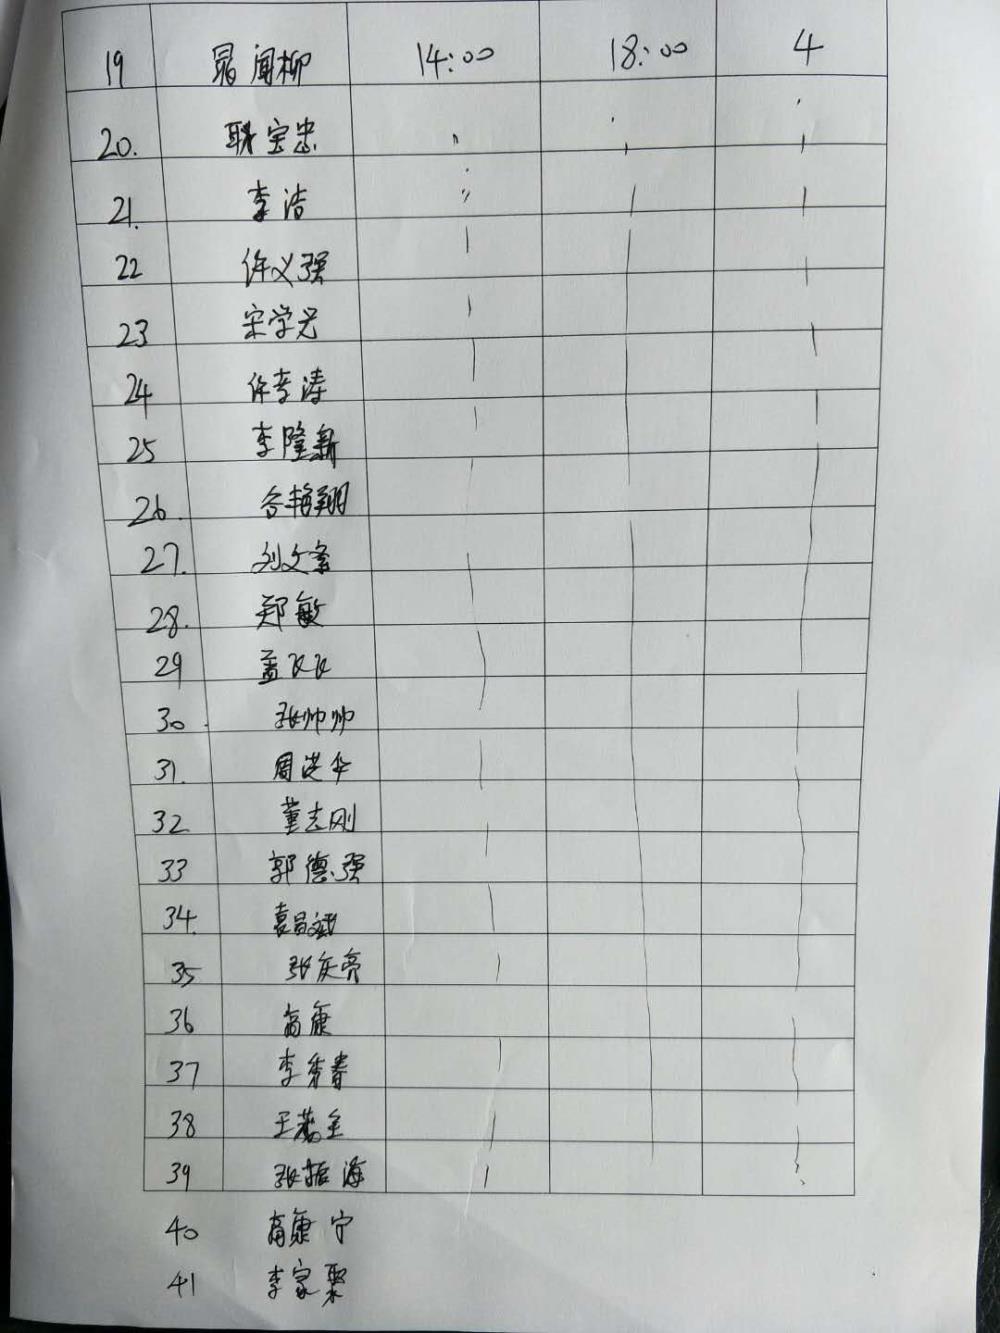 19 晁闻柳 14:00 18:00 4
20. 耿宝忠
21. 李洁
22 许义强
23 宋学兴
24 许李涛
25 李隆新
26. 谷艳翔
27. 刘文
28. 郑敏
29 孟飞飞
30. 张帅帅
31. 周洪伞
32 董志刚
33 郭德强
34. 袁昌斌
35 张庆亮
36 高康
37 李秀春
38 王金
39 张振海
40 高康宁
41 李家聚